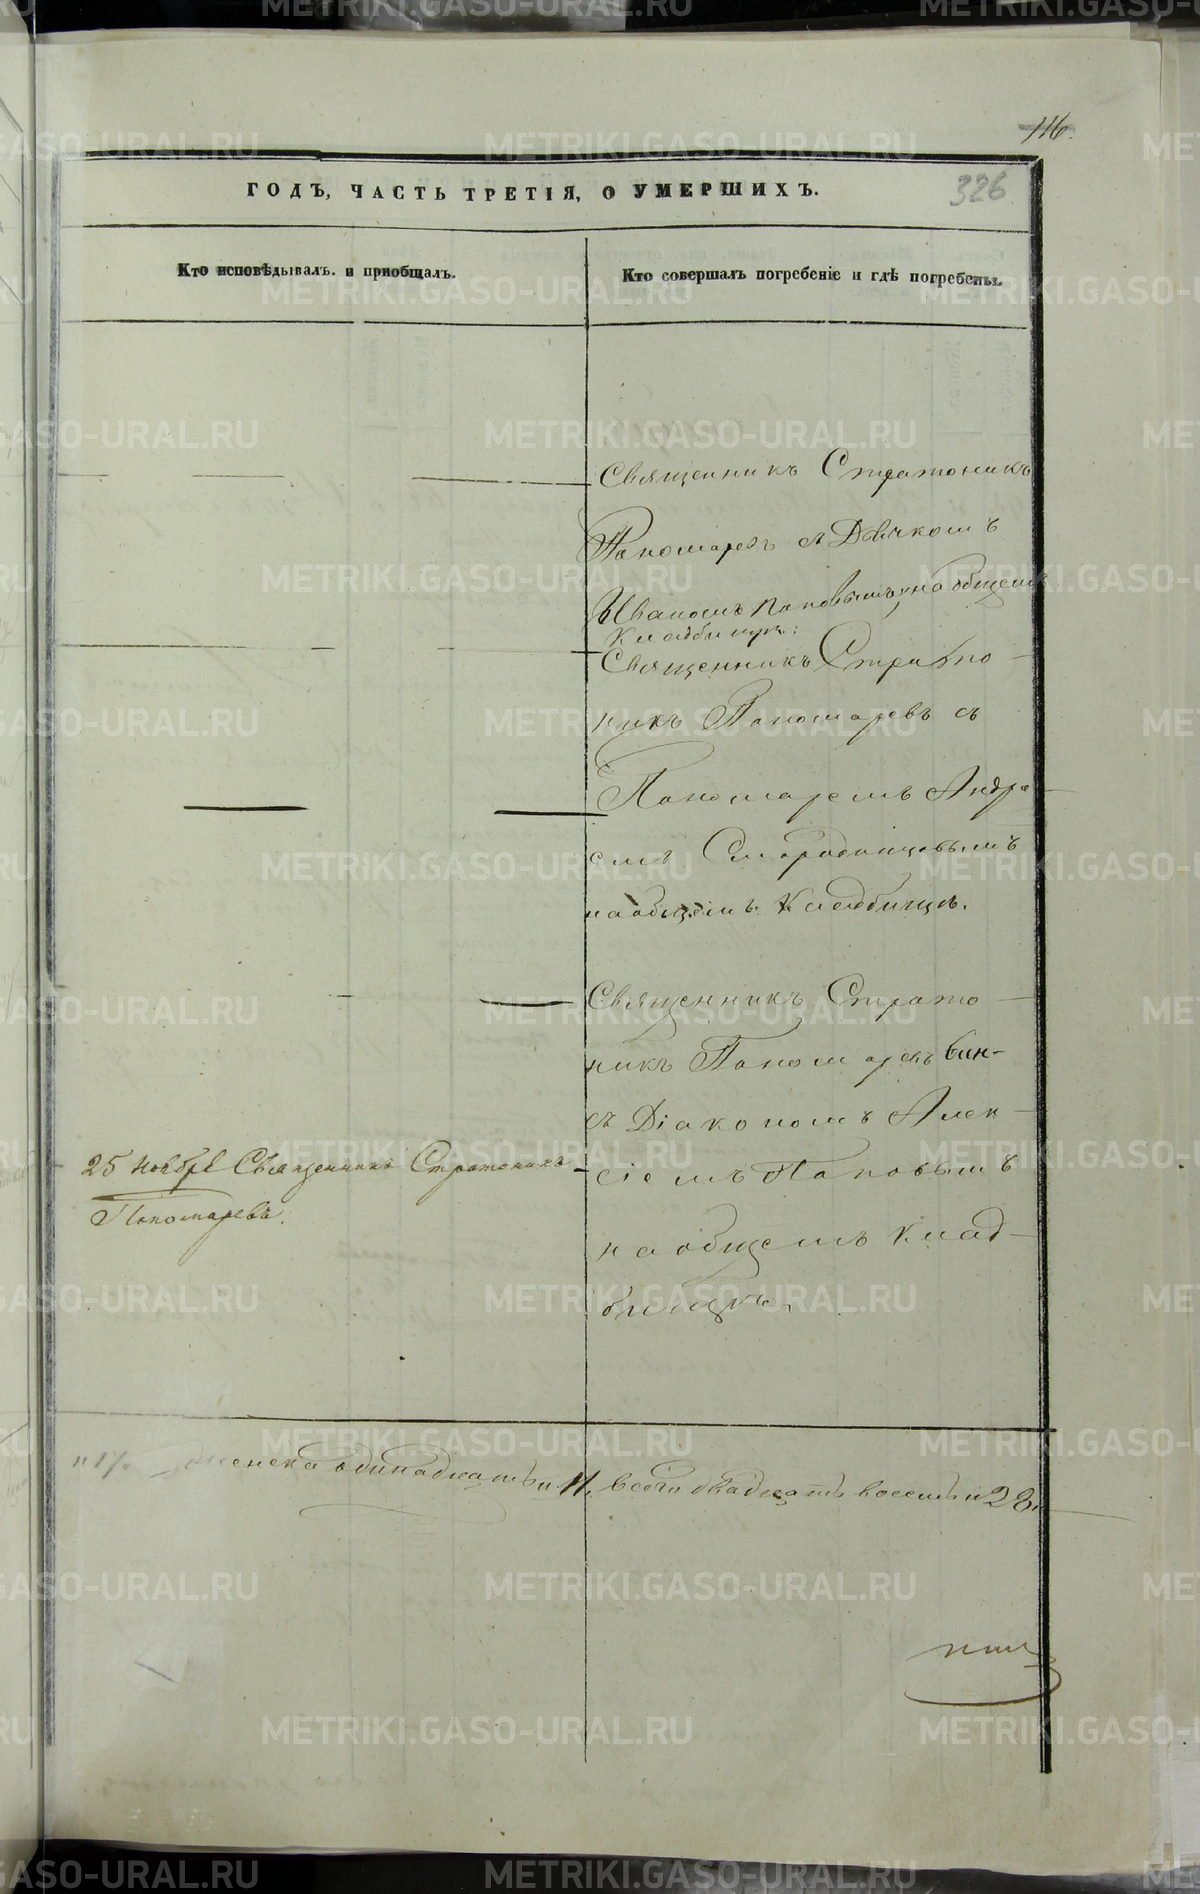 116.
ГОДЪ, ЧАСТЬ ТРЕТІЯ, О УМЕРШИХЪ.
326
Кто исповѣдывалъ и приобщалъ.
Кто совершалъ погребеніе и гдѣ погребены.
Священникъ Стратоникъ
Пономаревъ съ Дьячкомъ
Иваномъ Поповымъ, на общемъ
Кладбищѣ.
Священникъ Страто
никъ Пономаревъ съ
Пономаремъ Андре
емъ Смородинцовымъ
на общемъ Кладбищѣ.
Священникъ Страто
никъ Пономаревъ
съ Діакономъ Алек
сіемъ Поповымъ
на общемъ клад
бищѣ.
25 Ноября Священникъ Стратоникъ
Пономаревъ.
и 17. женска одинадцать и 11, всего двадцать восемь и 28.
METRIKI.GASO-URAL.RU